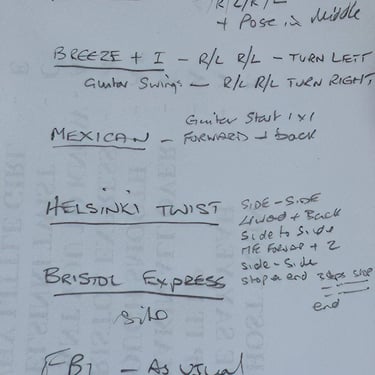 R/L/R/L
+ Pose in Middle
BREEZE + I - R/L R/L - TURN LEFT
Guitar Swings - R/L R/L TURN RIGHT
Guitar Start 1x1
MEXICAN - FORWARD + back
HELSINKI TWIST
SIDE-SIDE
4WOOD + Back
Side to Side
ME FORWAD + 2
side-side
BRISTOL EXPRESS
stop & end 3 stps stop
end
silo
FBI - As usual